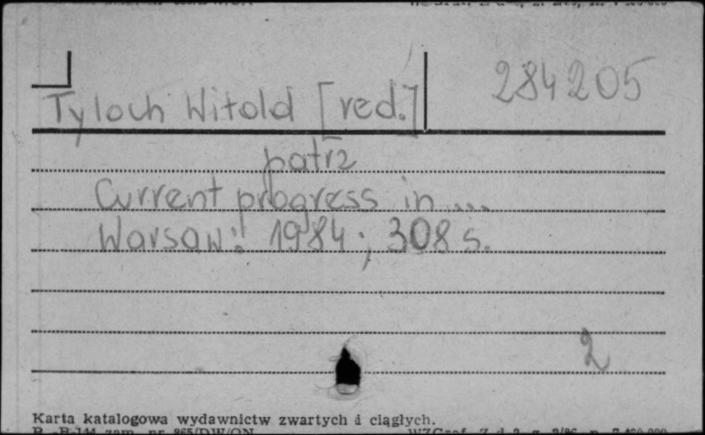 284205
Tyloch Witold [red.]
patrz
Current progress in ...
Warsaw: 1984; 308 s.
2
Karta katalogowa wydawnictw zwartych i ciągłych.